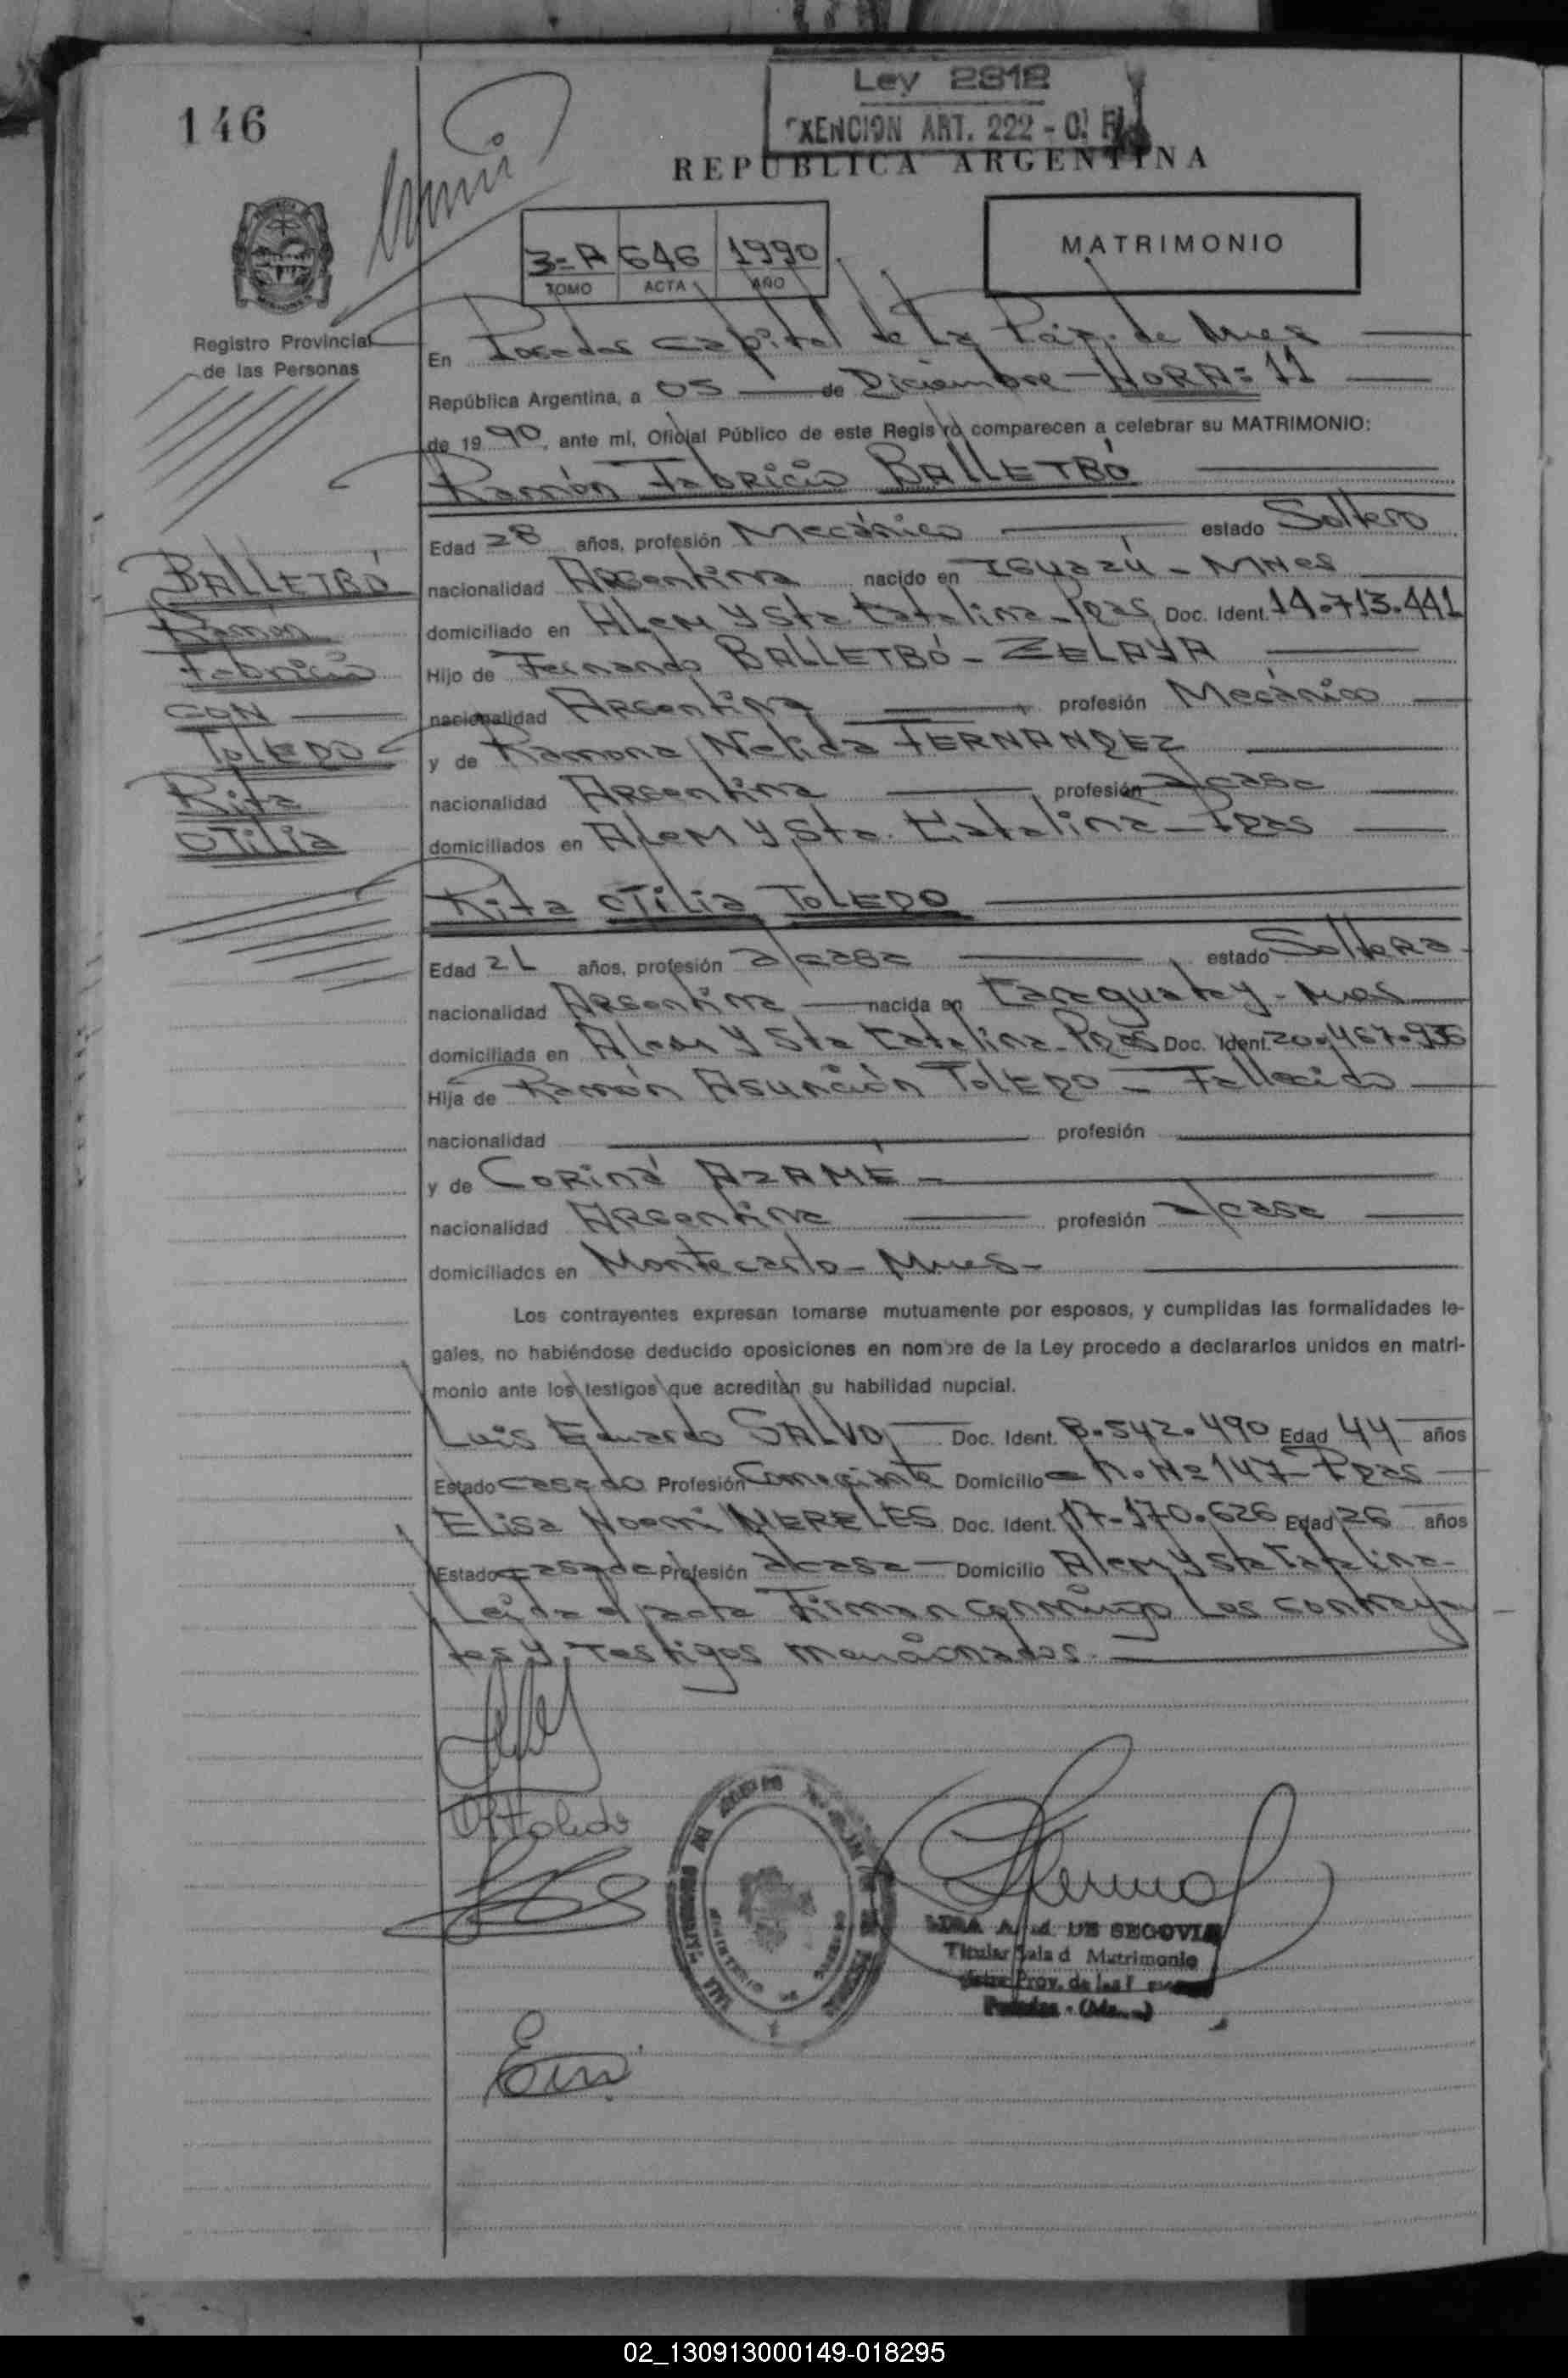 Ley 2812
EXENCION ART. 222 - C. F.
146
REPUBLICA ARGENTINA
3=A 646 1990
TOMO ACTA AÑO
MATRIMONIO
Registro Provincial
de las Personas
En Posadas Capital de La de Mnes
República Argentina, a 05 de Diciembre - HORA: 11
de 1990, ante mí, Oficial Público de este Registro comparecen a celebrar su MATRIMONIO:
Ramón Fabricio BALLETBÓ
Edad 28 años, profesión Mecánico estado Soltero
nacionalidad Argentina nacido en IGuazú - MNes
domiciliado en ALEM y Sta Catalina - Pdas Doc. Ident. 14.713.441
Hijo de Fernando BALLETBÓ - ZELAYA
nacionalidad Argentina profesión Mecánico
y de Ramona Nelida FERNANDEZ
nacionalidad Argentina profesión a/casa
domiciliados en ALEM y Sta. Catalina - Pdas
BALLETBÓ
Ramón
Fabricio
CON
TOLEDO
Rita
OTILIA
Rita OTILIA TOLEDO
Edad 21 años, profesión a/casa estado Soltera
nacionalidad Argentina nacida en Caraguatay - Mnes
domiciliada en Alem y Sta Catalina - Pdas Doc. Ident. 20.467.936
Hija de Ramón Asunción TOLEDO - Fallecido
nacionalidad profesión
y de CORINA AZAMÉ -
nacionalidad Argentina profesión a/casa
domiciliados en Montecarlo - Mnes -
Los contrayentes expresan tomarse mutuamente por esposos, y cumplidas las formalidades le-
gales, no habiéndose deducido oposiciones en nombre de la Ley procedo a declararlos unidos en matri-
monio ante los testigos que acreditan su habilidad nupcial.
Luis Eduardo SALVO Doc. Ident. 8.542.490 Edad 44 años
Estado casado Profesión Comerciante Domicilio Nº 147 - Pdas
Elisa Noemi MERELES Doc. Ident. 17.170.626 Edad 26 años
Estado casada Profesión a/casa Domicilio Alem y Sta Catalina -
Leída el acta Firman conmigo Los contrayen
tes y Testigos mencionados.
DE SEGOVIA
Titular Sala d Matrimonio
Prov. de las
Posadas
02_130913000149-018295